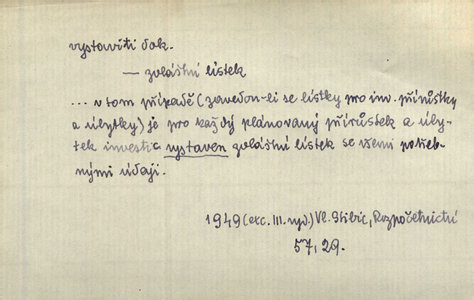 vystaviti dok.
— zvláštní lístek
... v tom případě (zavedou-li se lístky pro inv. přírůstky
a úbytky) je pro každý plánovaný přírůstek a úby-
tek investic vystaven zvláštní lístek se všemi potřeb-
nými údaji.
1949 (exc. III. vyd.) Vl. Stibic, Rozpočetnictví
57, 29.